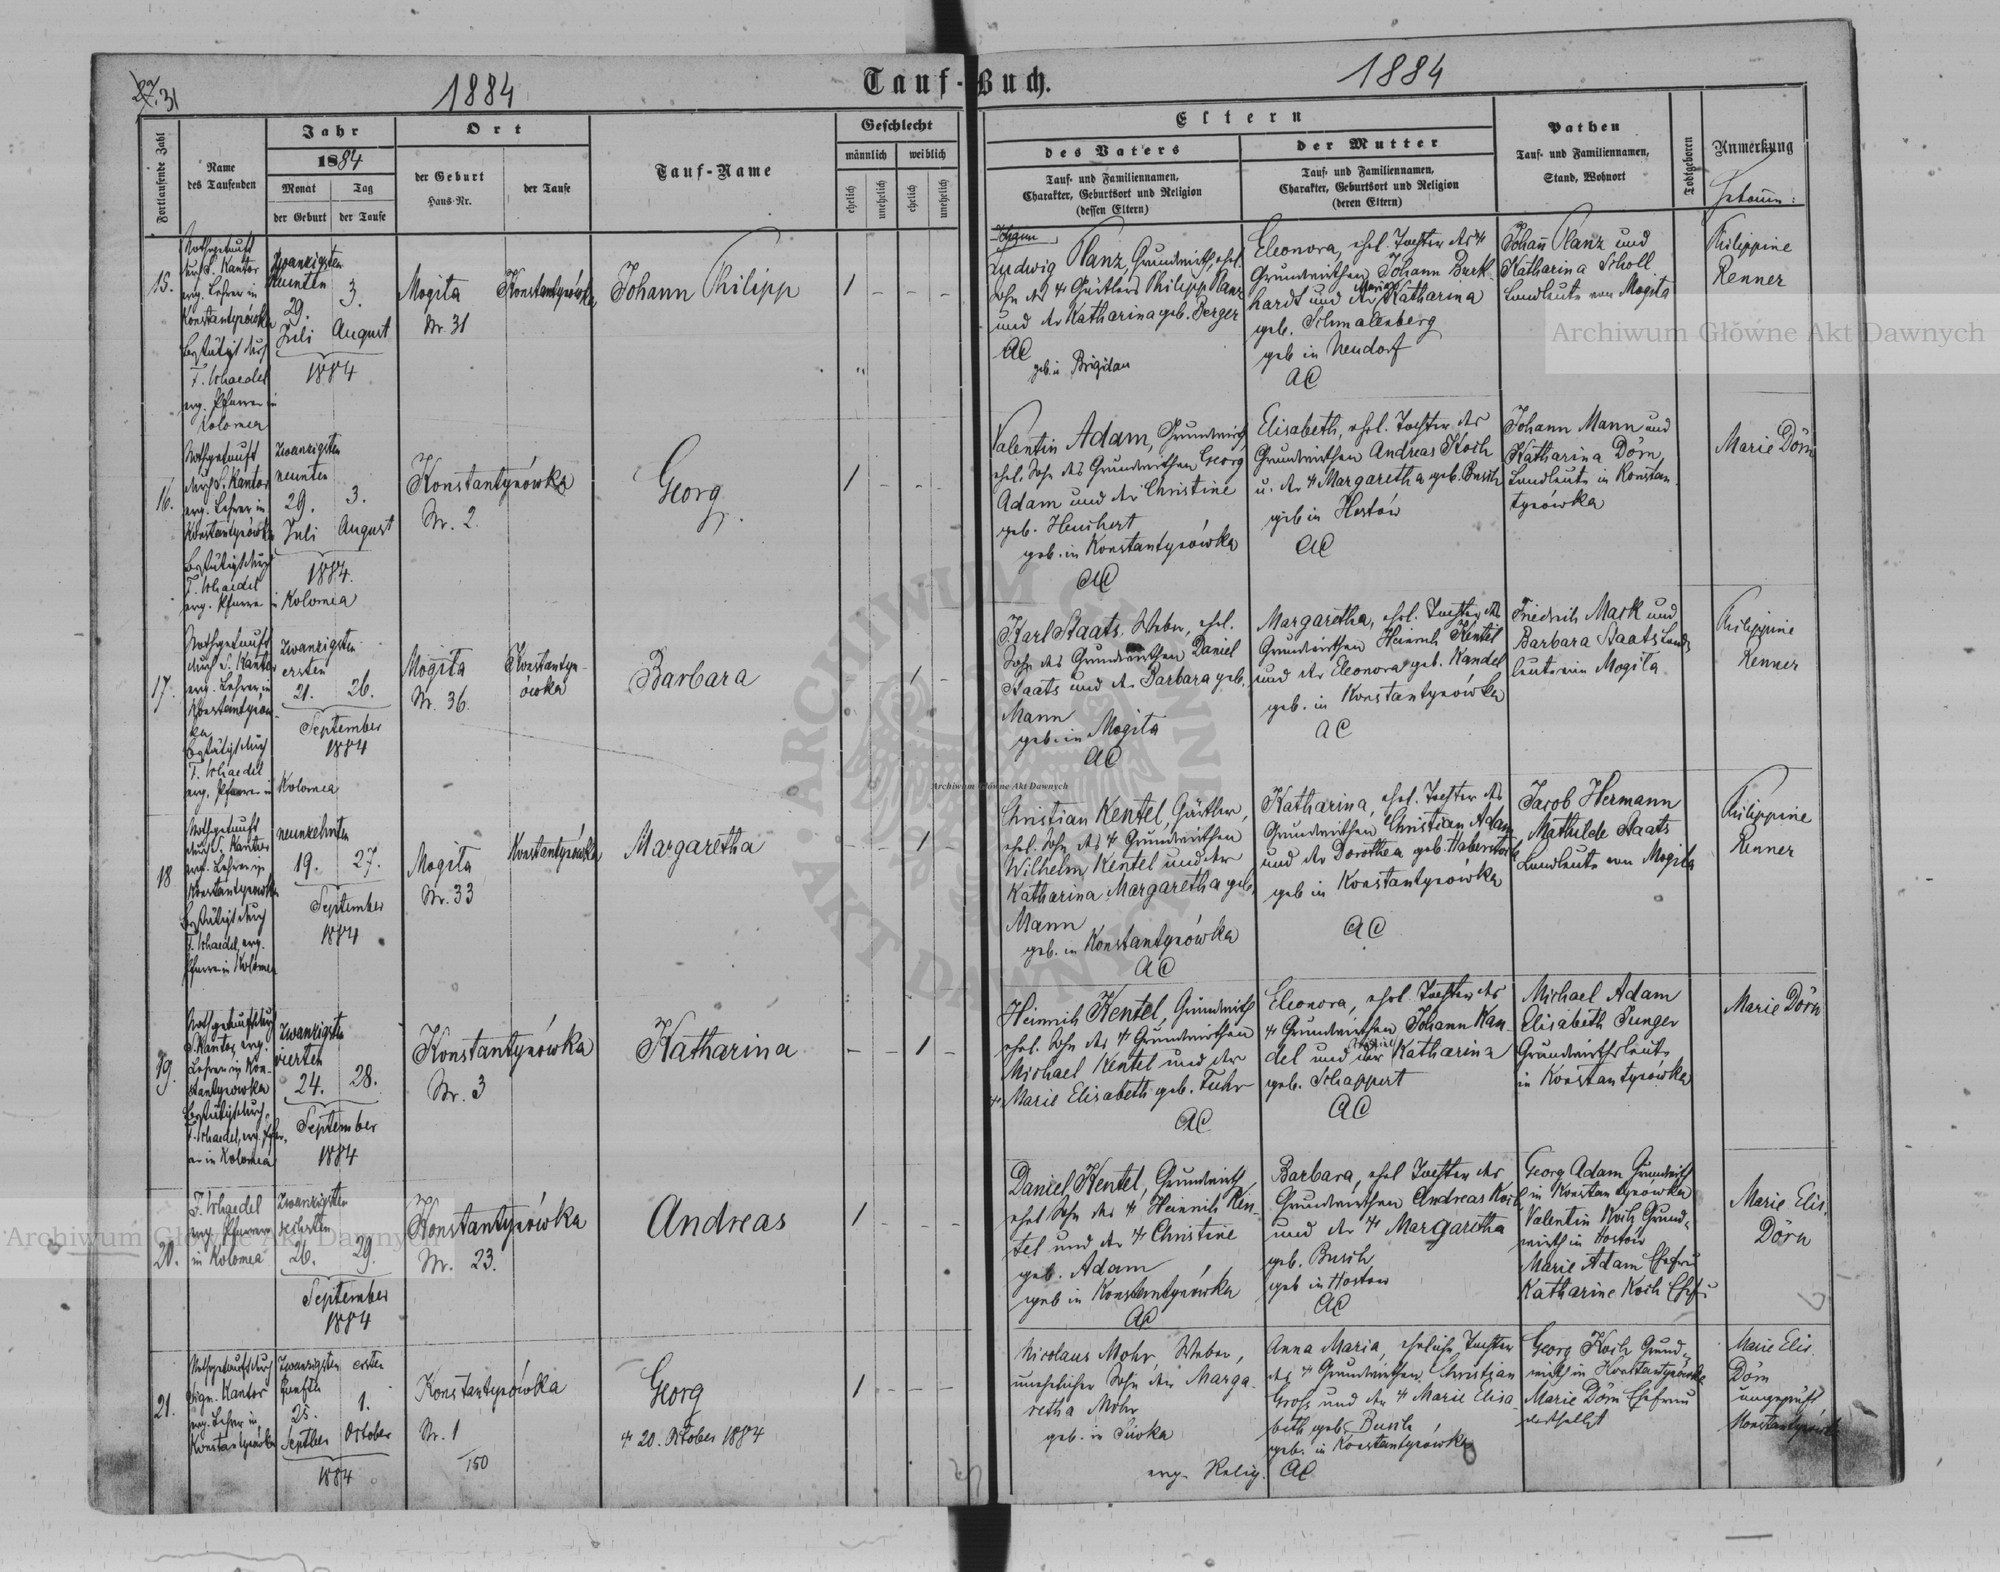 27. 31
1884
Tauf-Buch.
1884
Fortlaufende Zahl
Name
des Taufenden
Jahr
1884
Monat
Tag
der Geburt
der Taufe
Ort
der Geburt
Haus-Nr.
der Taufe
Tauf-Name
Geschlecht
männlich
weiblich
ehelich
unehelich
ehelich
unehelich
Eltern
des Vaters
Tauf- und Familiennamen,
Charakter, Geburtsort und Religion
(dessen Eltern)
der Mutter
Tauf- und Familiennamen,
Charakter, Geburtsort und Religion
(deren Eltern)
Pathen
Tauf- und Familiennamen,
Stand, Wohnort
Todtgeboren
Anmerkung
15.
Nothgetauft
durch S. Kantor
evg. Lehrer in
Konstantynówka
Bestätigt durch
F. Schaedel
evg. Pfarrer in
Kolomea
zwanzigsten
neunten
29.
3.
Juli
August
1884
Mogita
Nr. 31
Konstantynówka
Johann Philipp
1 - - -
Johann
Ludwig Planz, Grundwirth, ehel.
Sohn des † Gärtlers Philipp Planz
und der Katharina geb. Berger
AC
geb. in Brigidau
Eleonora, ehel. Tochter des †
Grundwirthen Johann Burk-
hardt und der Maria Katharina
geb. Schmalenberg
geb in Neudorf
AC
Johann Planz und
Katharina Scholl
Landleute von Mogita
Philippine
Renner
16.
Nothgetauft
durch S. Kantor
evg. Lehrer in
Konstantynówka
Bestätigt durch
F. Schaedel
evg. Pfarrer in Kolomea
zwanzigsten
neunten
29.
3.
Juli
August
1884.
Konstantynówka
Nr. 2.
Georg
1 - - -
Valentin Adam, Grundwirth,
ehel. Sohn des Grundwirthen Georg
Adam und der Christine
geb. Heuchert
geb. in Konstantynówka
AC
Elisabeth, ehel. Tochter des
Grundwirthen Andreas Koch
u. der † Margaretha geb. Busch
geb in Hostów
AC
Johann Mann und
Katharina Dörn,
Landleute in Konstan-
tynówka
Marie Dörn
17.
Nothgetauft
durch S. Kantor
evg. Lehrer in
Konstantynów-
ka
Bestätigt durch
F. Schaedel
evg. Pfarrer in Kolomea
zwanzigsten
ersten
21.
26.
September
1884
Mogita
Nr. 36.
Konstantyn-
ówka
Barbara
- - 1 -
Karl Staats, Weber, ehel.
Sohn des Grundwirthen Daniel
Staats und der Barbara geb.
Mann
geb. in Mogita
AC
Margaretha, ehel. Tochter des
Grundwirthen Heinrich Kentel
und der Eleonora geb. Kandel
geb. in Konstantynówka
AC
Friedrich Mark und
Barbara Staats Land-
leute in Mogita
Philippine
Renner
18
Nothgetauft
durch S. Kantor
evg. Lehrer in
Konstantynówka
Bestätigt durch
F. Schaedel, evg.
Pfarrer in Kolomea
neunzehnten
19.
27.
September
1884
Mogita
Nr. 33
Konstantynówka
Margaretha
- - 1 -
Christian Kentel, Gärtler,
ehel. Sohn des † Grundwirthen
Wilhelm Kentel und der
Katharina Margaretha geb.
Mann
geb. in Konstantynówka
AC
Katharina, ehel. Tochter des
Grundwirthen Christian Adam
und der Dorothea geb. Haberstock
geb in Konstantynówka
AC
Jacob Hermann
Mathilde Staats
Landleute von Mogita
Philippine
Renner
19.
Nothgetauft durch
S. Kantor, evg.
Lehrer in Kon-
stantynowka
Bestätigt durch
F. Schaedel, evg. Pfar-
rer in Kolomea
zwanzigsten
vierten
24.
28.
September
1884
Konstantynówka
Nr. 3
Katharina
- - 1 -
Heinrich Kentel, Grundwirth
ehel. Sohn des † Grundwirthen
Michael Kentel und der
† Marie Elisabeth geb. Fuhr
AC
Eleonora, ehel. Tochter des
† Grundwirthen Johann Kan-
del und der Katharina
geb. Schappert
AC
Michael Adam
Elisabeth Junger
Grundwirthsleute
in Konstantynówka
Marie Dörn
20.
F. Schaedel
evg. Pfarrer
in Kolomea
zwanzigsten
sechsten
26.
29.
September
1884
Konstantynówka
Nr. 23.
Andreas
1 - - -
Daniel Kentel, Grundwirth
ehel Sohn des † Heinrich Ken-
tel und der † Christine
geb. Adam
geb in Konstantynówka
AC
Barbara, ehel Tochter des
Grundwirthen Andreas Koch
und der † Margaretha
geb. Busch
geb in Hostow
AC
Georg Adam Grundwirth
in Konstantynowka
Valentin Koch Grund-
wirth in Hostow
Marie Adam Ehefrau
Katharine Koch Ehefr
Marie Elis.
Dörn
21.
Nothgetauft durch
Sigm. Kantor
evg. Lehrer in
Konstantynówka
zwanzigsten
fünften
25.
Septber
ersten
1.
October
1884
Konstantynówka
Nr. 1
150
Georg
† 20. October 1884
1 - - -
Nicolaus Mohr, Weber,
unehelicher Sohn der Marga-
retha Mohr
geb. in Siwka
evg. Relig.
Anna Maria, eheliche Tochter
des † Grundwirthen Christian
Gross und der † Marie Elisa-
beth geb. Busch
geb. in Konstantynówka
AC
Georg Koch Grund-
wirth in Konstantynówka
Marie Dörn Ehefrau
daselbst
Marie Elis.
Dörn
ungeprüft
Konstantynówka
Archiwum Główne Akt Dawnych
Archiwum Główne Akt Dawnych
Archiwum Główne Akt Dawnych